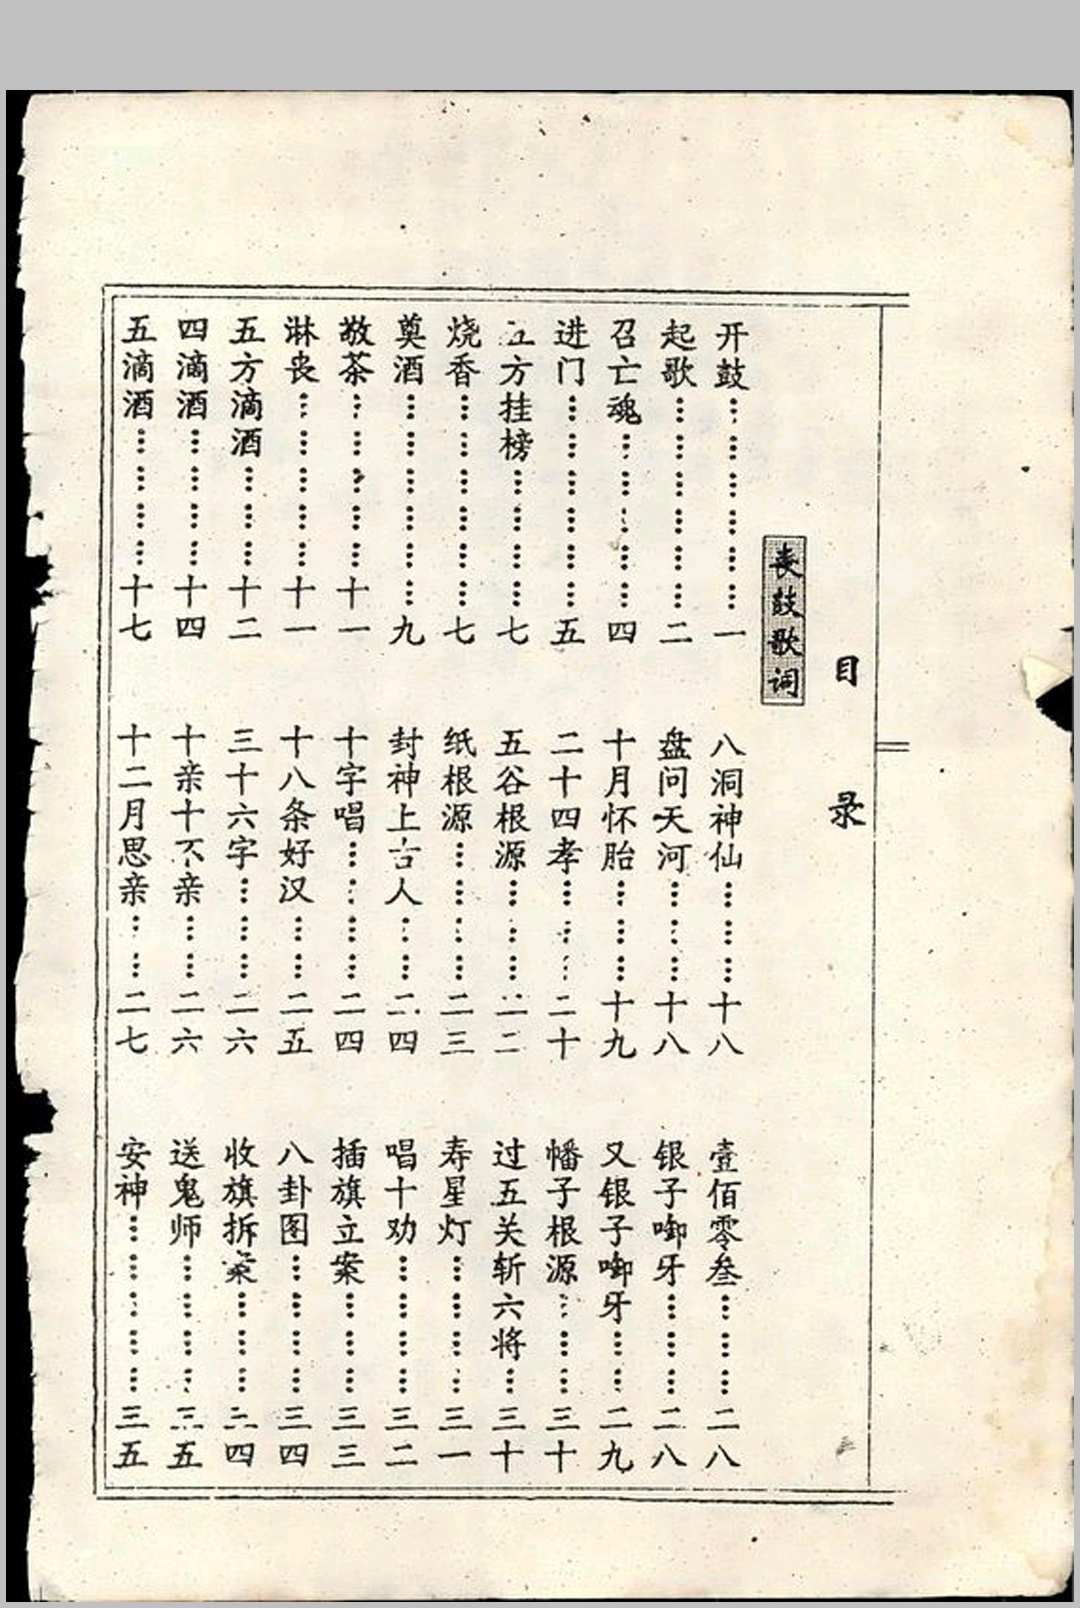 目录
丧鼓歌词
开鼓……………………一
起歌……………………二
召亡魂…………………四
进门……………………五
五方挂榜………………七
烧香……………………七
奠酒……………………九
敬茶…………………十一
淋丧…………………十一
五方滴酒……………十二
四滴酒………………十四
五滴酒………………十七
八洞神仙……………十八
盘问天河……………十八
十月怀胎……………十九
二十四孝……………二十
五谷根源……………二二
纸根源………………二三
封神上古人…………二四
十字唱………………二四
十八条好汉…………二五
三十六字……………二六
十亲十不亲…………二六
十二月思亲…………二七
壹佰零叁……………二八
银子啣牙……………二八
又银子啣牙…………二九
幡子根源……………三十
过五关斩六将………三十
寿星灯………………三一
唱十劝………………三二
插旗立案……………三三
八卦图………………三四
收旗拆案……………三四
送鬼师………………三五
安神…………………三五